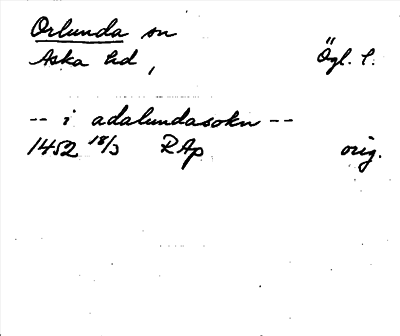 Orlunda sn
Aska hd, Ögl. l.
-- i adalundasokn --
1452 18/3 RAp orig.